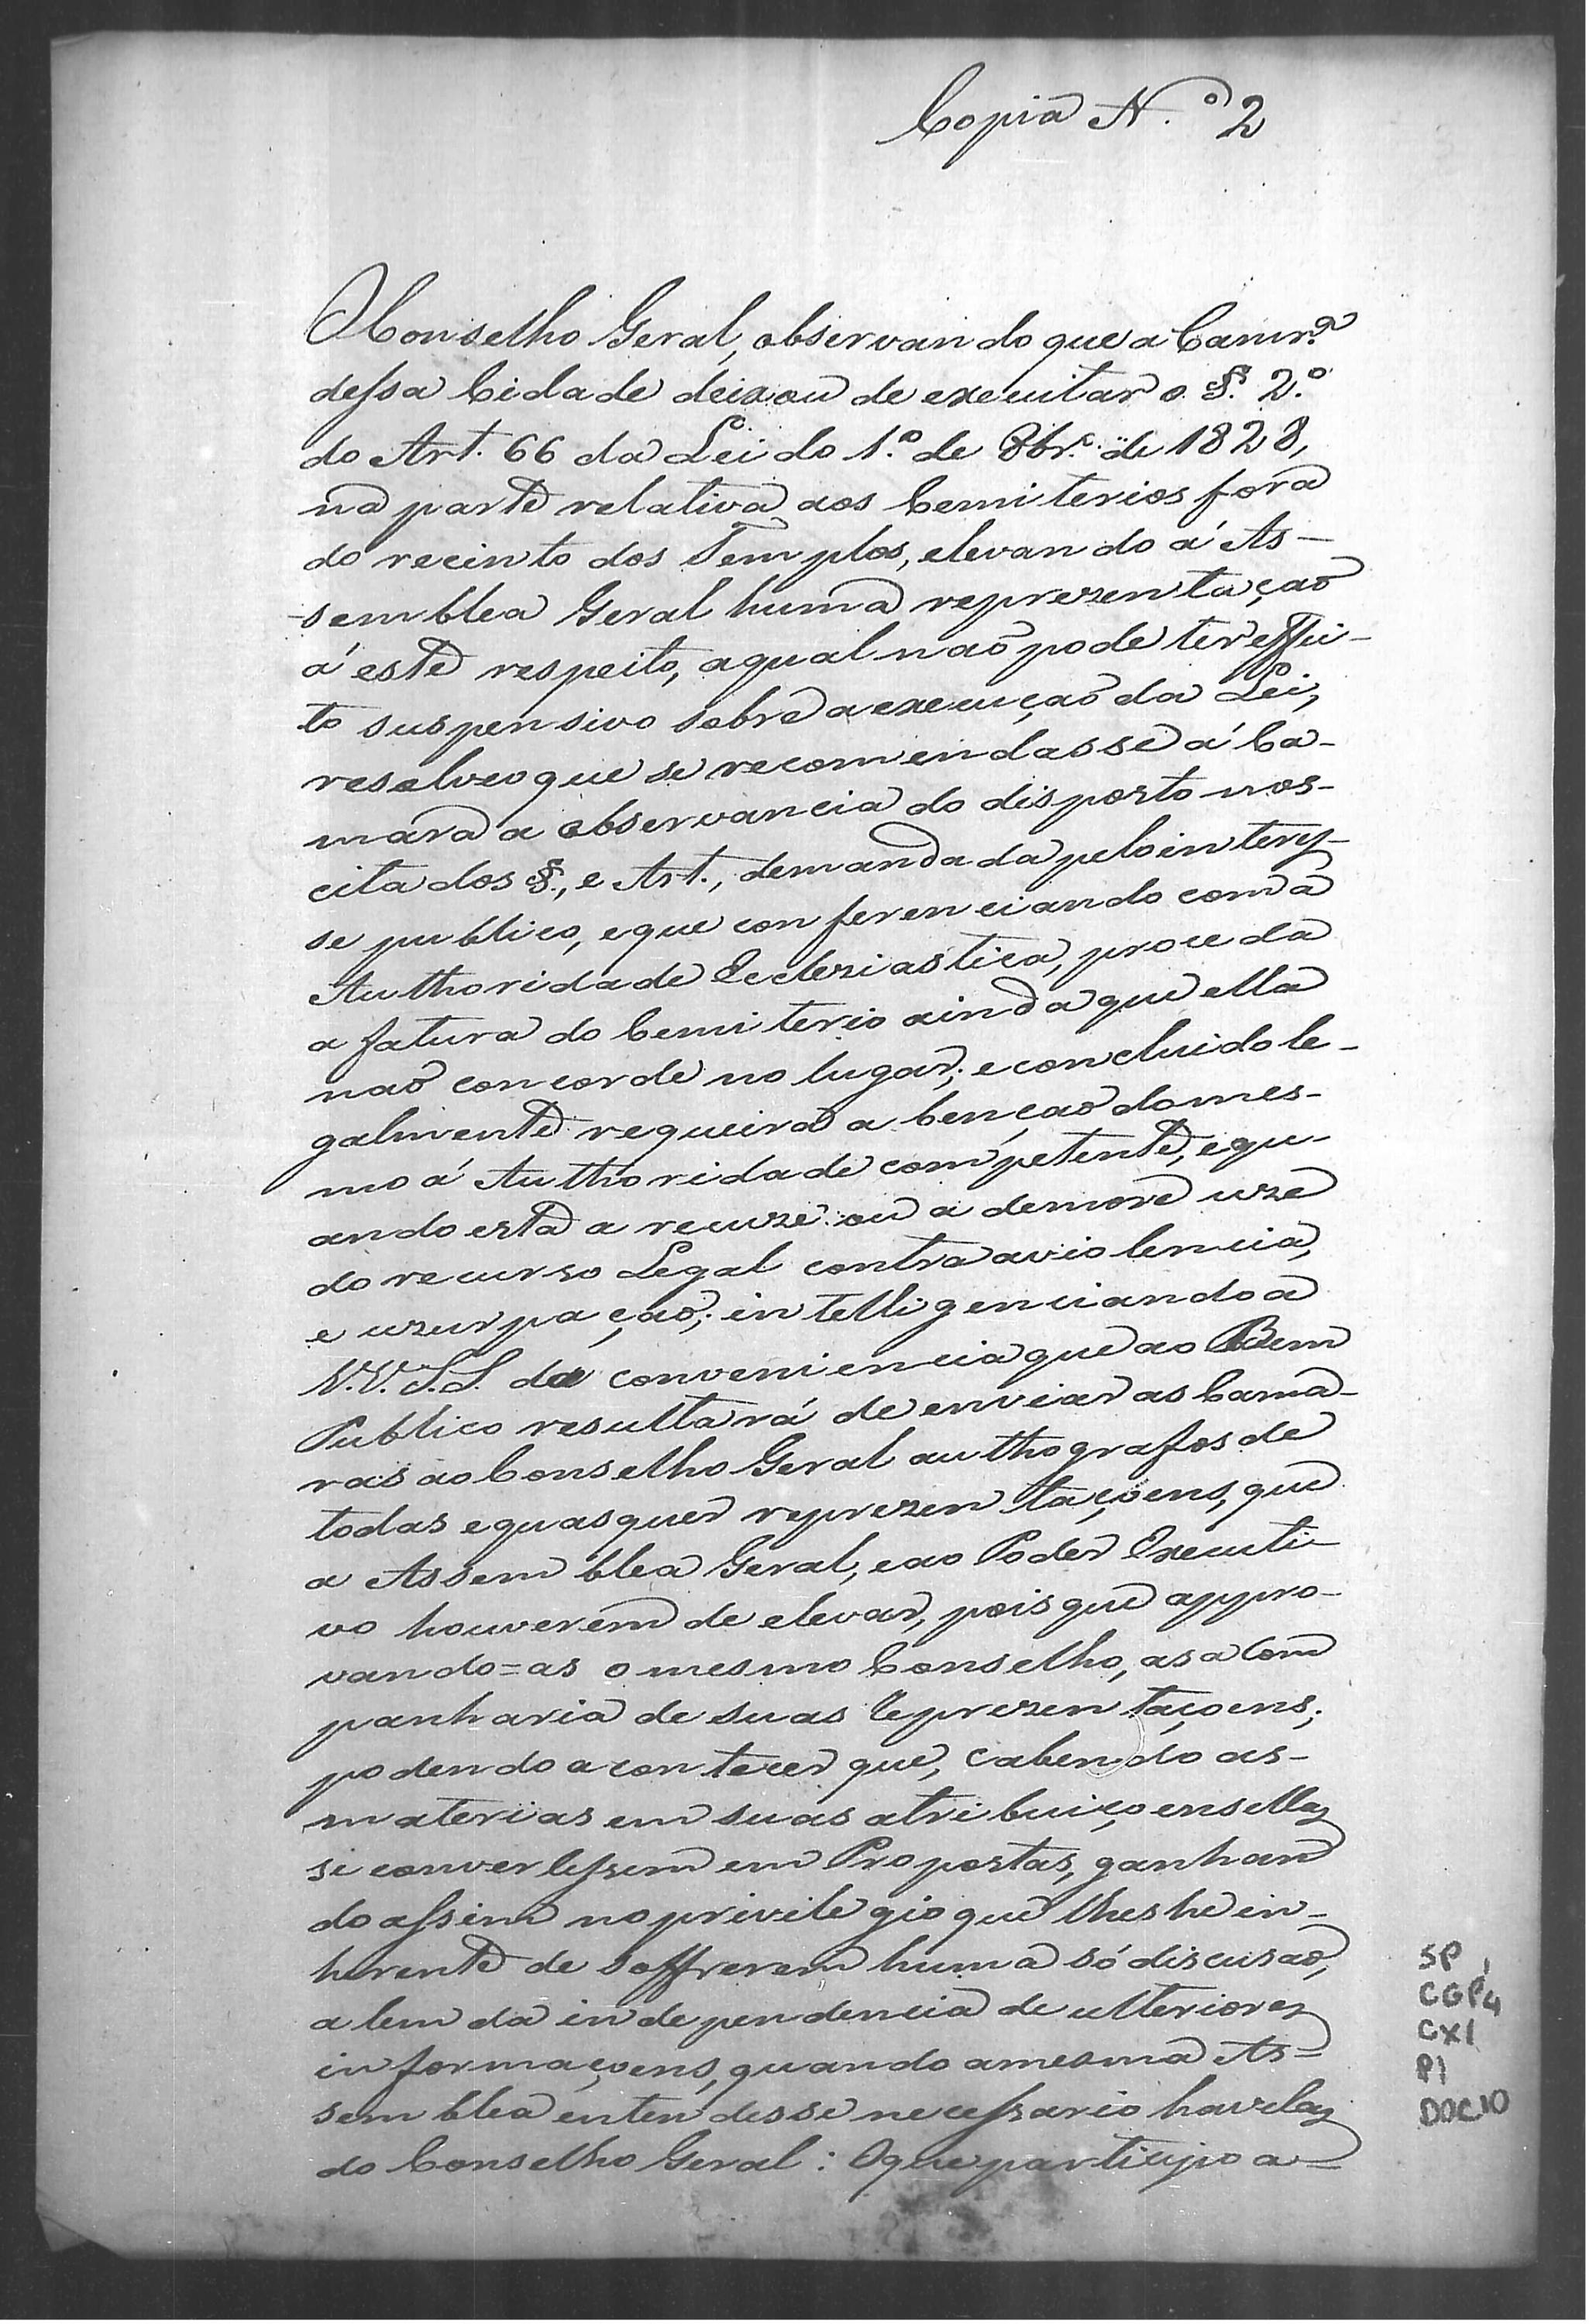 Copia N.º 2
O Conselho Geral, observando que a Camr.ª
dessa Cidade deixou de executar o §. 2.º
do Art. 66 da Lei do 1.º de 8br.º de 1828,
na parte relativa aos Cemiterios fora
do recinto dos Templos, elevando á As-
-semblea Geral huma reprezentação
á este respeito, a qual não pode ter effei-
to suspensivo sobre a execução da Lei,
resolveo que se recomendasse á Ca-
mara a observancia do disposto nos
citados §., e Art., demandada pelo interes-
se publico, e que conferenciando com a
Authoridade Ecclesiastica, proceda
a fatura do Cemiterio ainda que ella
não concorde no lugar; e concluido le-
galmente requeira a benção do mes-
mo á Authoridade competente, e qu-
ando esta a recuze ou a demore uze
do recurso Legal contra a violencia,
e uzurpação; intelligenciando a
V.V. S.S. da conveniencia que ao Bem
Publico resultará de enviar as Cama-
ras ao Conselho Geral authografos de
todas e quasquer reprezentaçoens, que
a Assemblea Geral, e ao Poder Executi-
vo houverem de elevar, pois que appro-
vando=as o mesmo Conselho, as acom
panharia de suas Reprezentaçoens;
podendo acontecer que, cabendo as-
materias em suas atribuiçoens ellas
se convertessem em Propostas, ganhan
do assim no privilegio que lhes he in-
herente de soffrerem huma só discusão,
alem da independencia de ulteriores
informaçoens, quando a mesma As=
semblea entendesse necessario havelas
do Conselho Geral: O que participo a=
SP
CGP4
CX1
P1
DOC10